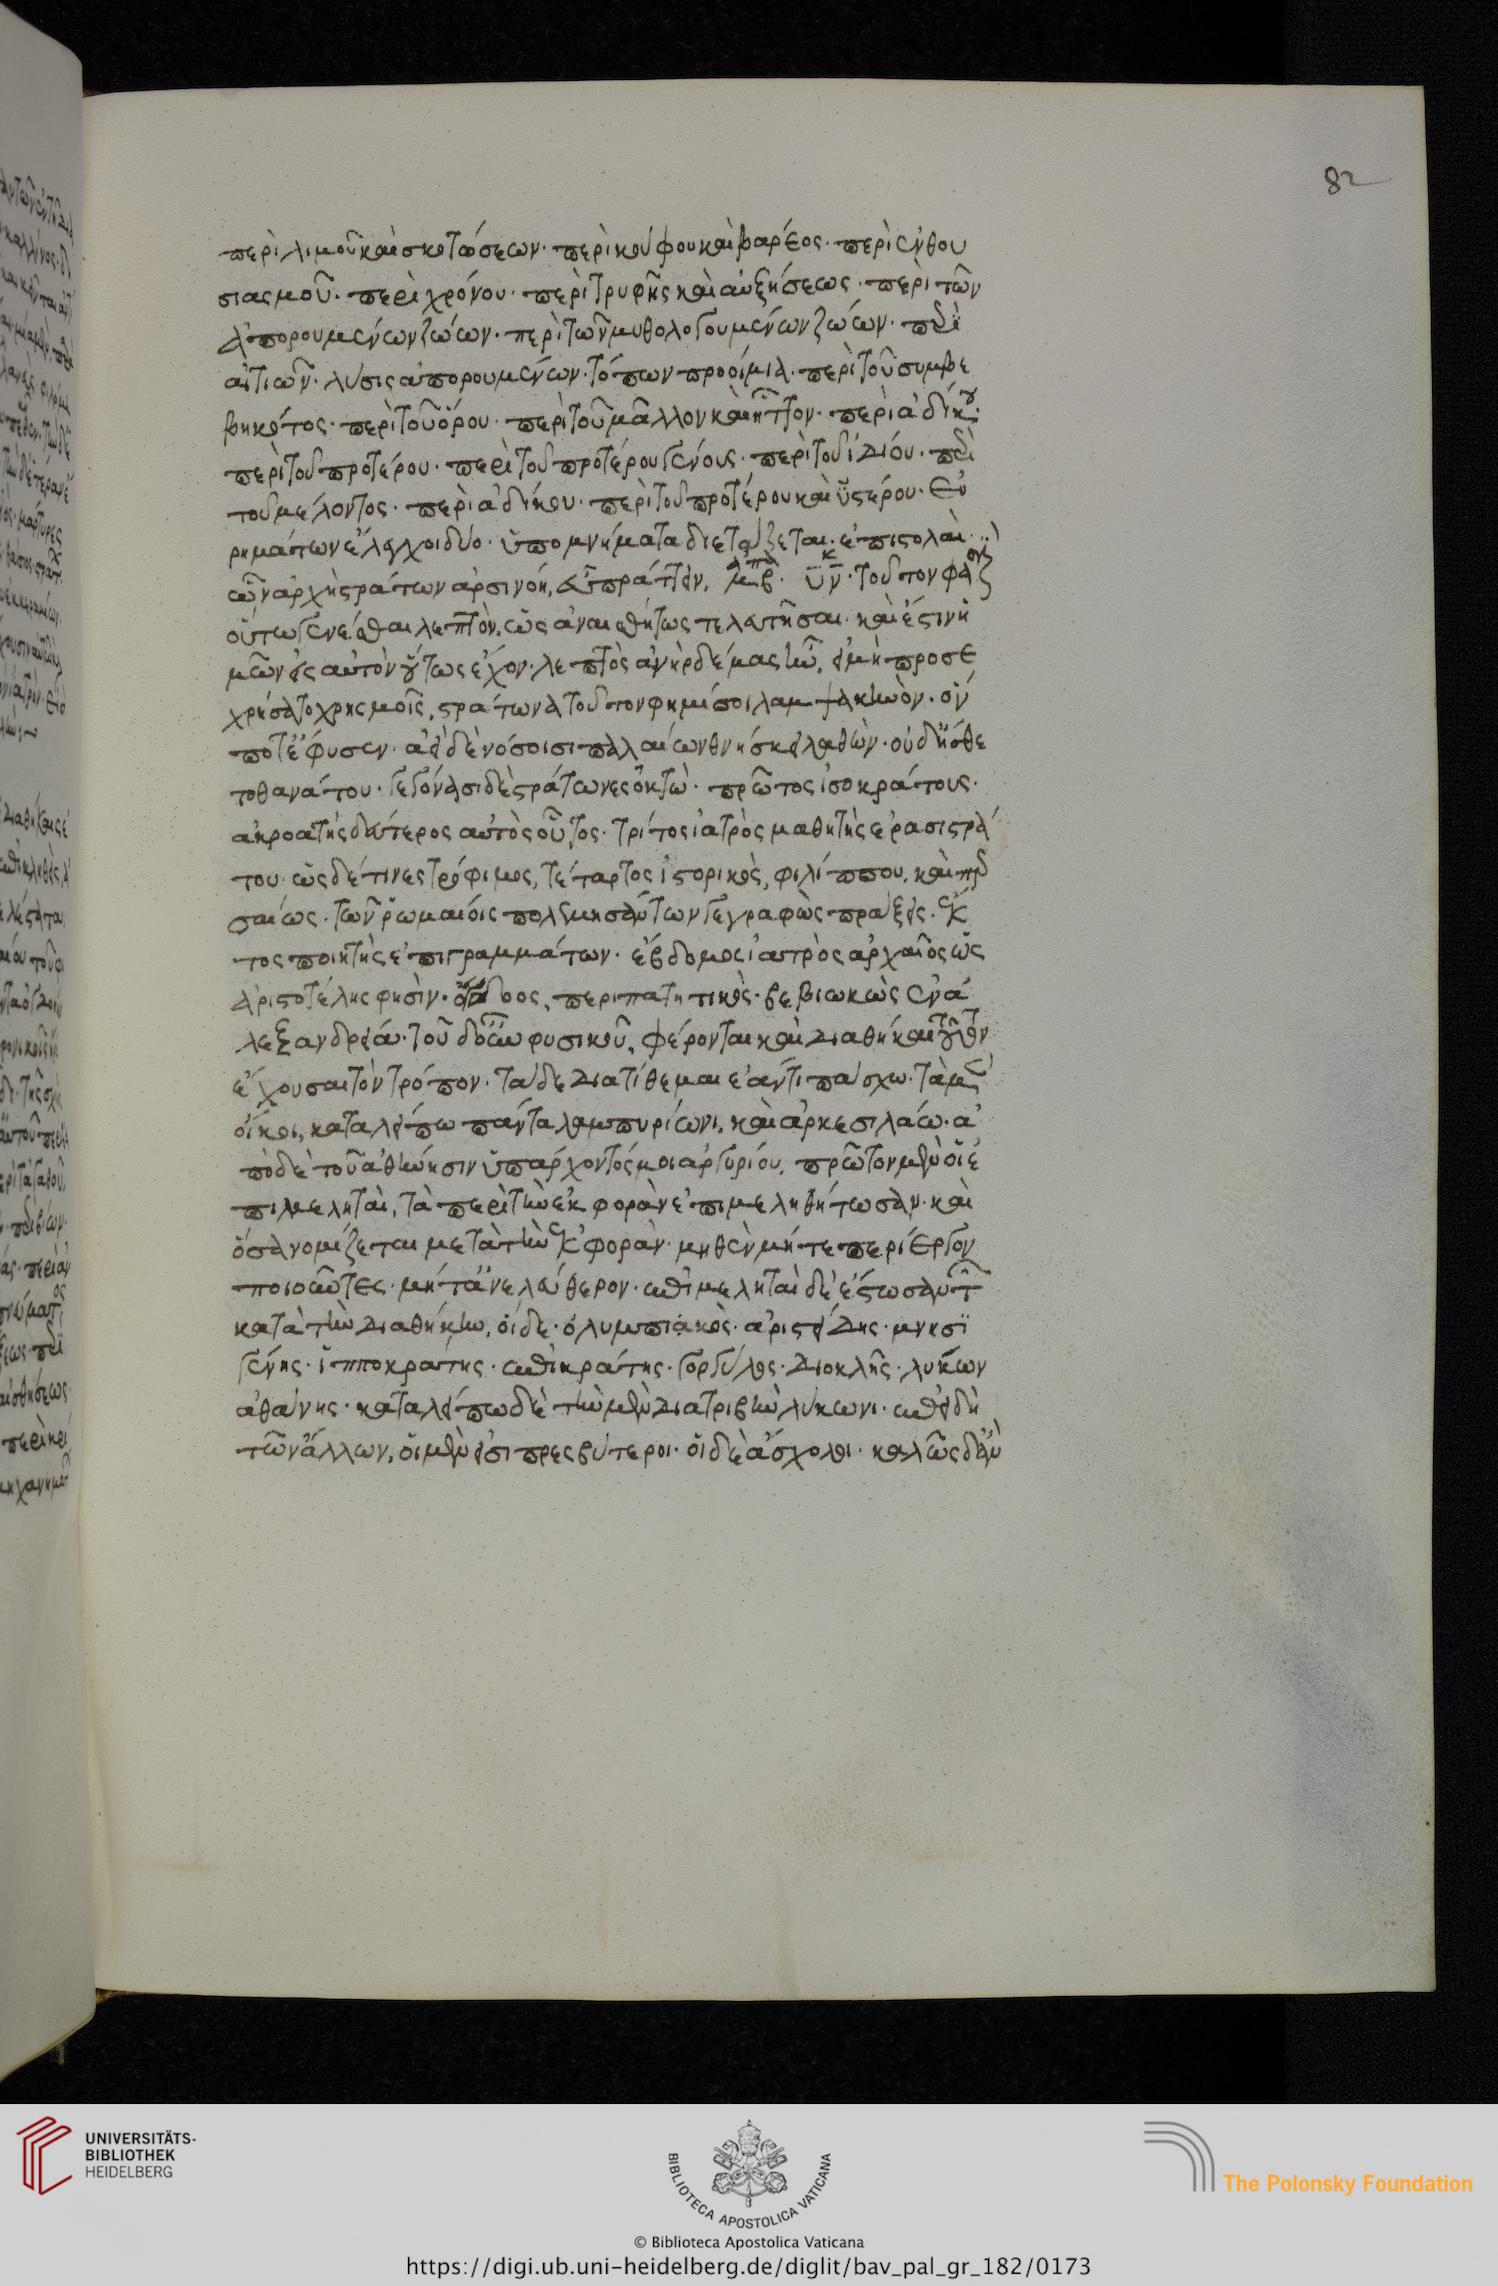 82
περὶ λιμοῦ καὶ σκοτώσεων· περὶ κούφου καὶ βαρέος· περὶ ἐνθου
σιασμοῦ· περὶ χρόνου· περὶ τρυφῆς καὶ αὐξήσεως· περὶ τῶν
ἀπορουμένων ζώων· περὶ τῶν μυθολογουμένων ζώων· περὶ
αἰτιῶν· λύσις ἀπορουμένων· τόπων προοίμια· περὶ τοῦ συμβε
βηκότος· περὶ τοῦ ὅρου· περὶ τοῦ μᾶλλον καὶ ἧττον· περὶ ἀδίκου·
περὶ τοῦ προτέρου· περὶ τοῦ προτέρου γένους· περὶ τοῦ ἰδίου· περὶ
τοῦ μέλοντος· περὶ ἀδίκου· περὶ τοῦ προτέρου καὶ ὑστέρου· εὑ
ρημάτων ἔλεγχοι δύο· ὑπομνήματα διετάζεται· ἐπιστολαὶ
ὧν ἀρχὴ στράτων ἀρσινόη, εὖ πράττειν, τοῦτον φασὶ
οὕτω γενέσθαι λεπτὸν, ὡς ἀναισθήτως τελευτῆσαι· καὶ ἔστιν ἡ
μῶν εἰς αὐτὸν οὕτως ἔχον· λεπτὸς ἀνὴρ δέμας ἦν, εἰ μὴ προσε
χρήσατο χρησμοῖς, στράτωνα τοῦτον φημί σοι λαμψακηνὸν· ὅν
ποτ' ἔφυσεν· ἀεὶ δὲ νόσοισι παλαίων θνήσκει λαθὼν· οὐδ' ἤσθε
το θανάτου· γεγόνασι δὲ στράτωνες ὀκτὼ· πρῶτος ἰσοκράτους·
ἀκροατὴς δεύτερος αὐτὸς οὗτος· τρίτος ἰατρὸς μαθητὴς ἐρασιστρά
του· ὡς δέ τινες τρόφιμος, τέταρτος ἱστορικὸς, φιλίππου, καὶ περ
σαίως· τῶν ῥωμαίοις πολεμησάντων γεγραφὼς πράξεις· ἕκ
τος ποιητὴς ἐπιγραμμάτων· ἕβδομος ἰατρὸς ἀρχαῖος ὡς
ἀριστοτέλης φησὶν· ὄγδοος, περιπατητικὸς· βεβιωκὼς ἐν ἀ
λεξανδρείᾳ· τοῦ δ' οὖν φυσικοῦ, φέρονται καὶ διαθῆκαι τοῦτον
ἔχουσαι τὸν τρόπον· τάδε διατίθεμαι ἐάν τι πάσχω· τὰ μὲν
οἴκοι, καταλείπω πάντα λαμπυρίωνι, καὶ ἀρκεσιλάῳ· ἀ
πὸ δὲ τοῦ ἀθήνησιν ὑπάρχοντός μοι ἀργυρίου, πρῶτον μὲν οἱ ἐ
πιμεληταὶ, τὰ περὶ τὴν ἐκφορὰν ἐπιμεληθήτωσαν· καὶ
ὅσα νομίζεται μετὰ τὴν ἐκφορὰν· μηθὲν μήτε περίεργον
ποιοῦντες· μήτ' ἀνελεύθερον· ἐπιμεληταὶ δὲ ἔστωσαν τῶν
κατὰ τὴν διαθήκην, οἵδε· ὀλυμπιακὸς· ἀριστείδης· μνησι
γένης· ἱπποκράτης· ἐπικράτης· γοργύλος· διοκλῆς· λύκων
ἀθάνης· καταλείπω δὲ τὴν μὲν διατριβὴν λύκωνι· ἐπειδὴ
τῶν ἄλλων, οἱ μὲν εἰσὶ πρεσβύτεροι· οἱ δὲ ἄσχολοι· καλῶς δ' ἂν
UNIVERSITÄTS-
BIBLIOTHEK
HEIDELBERG
BIBLIOTECA APOSTOLICA VATICANA
The Polonsky Foundation
© Biblioteca Apostolica Vaticana
https://digi.ub.uni-heidelberg.de/diglit/bav_pal_gr_182/0173